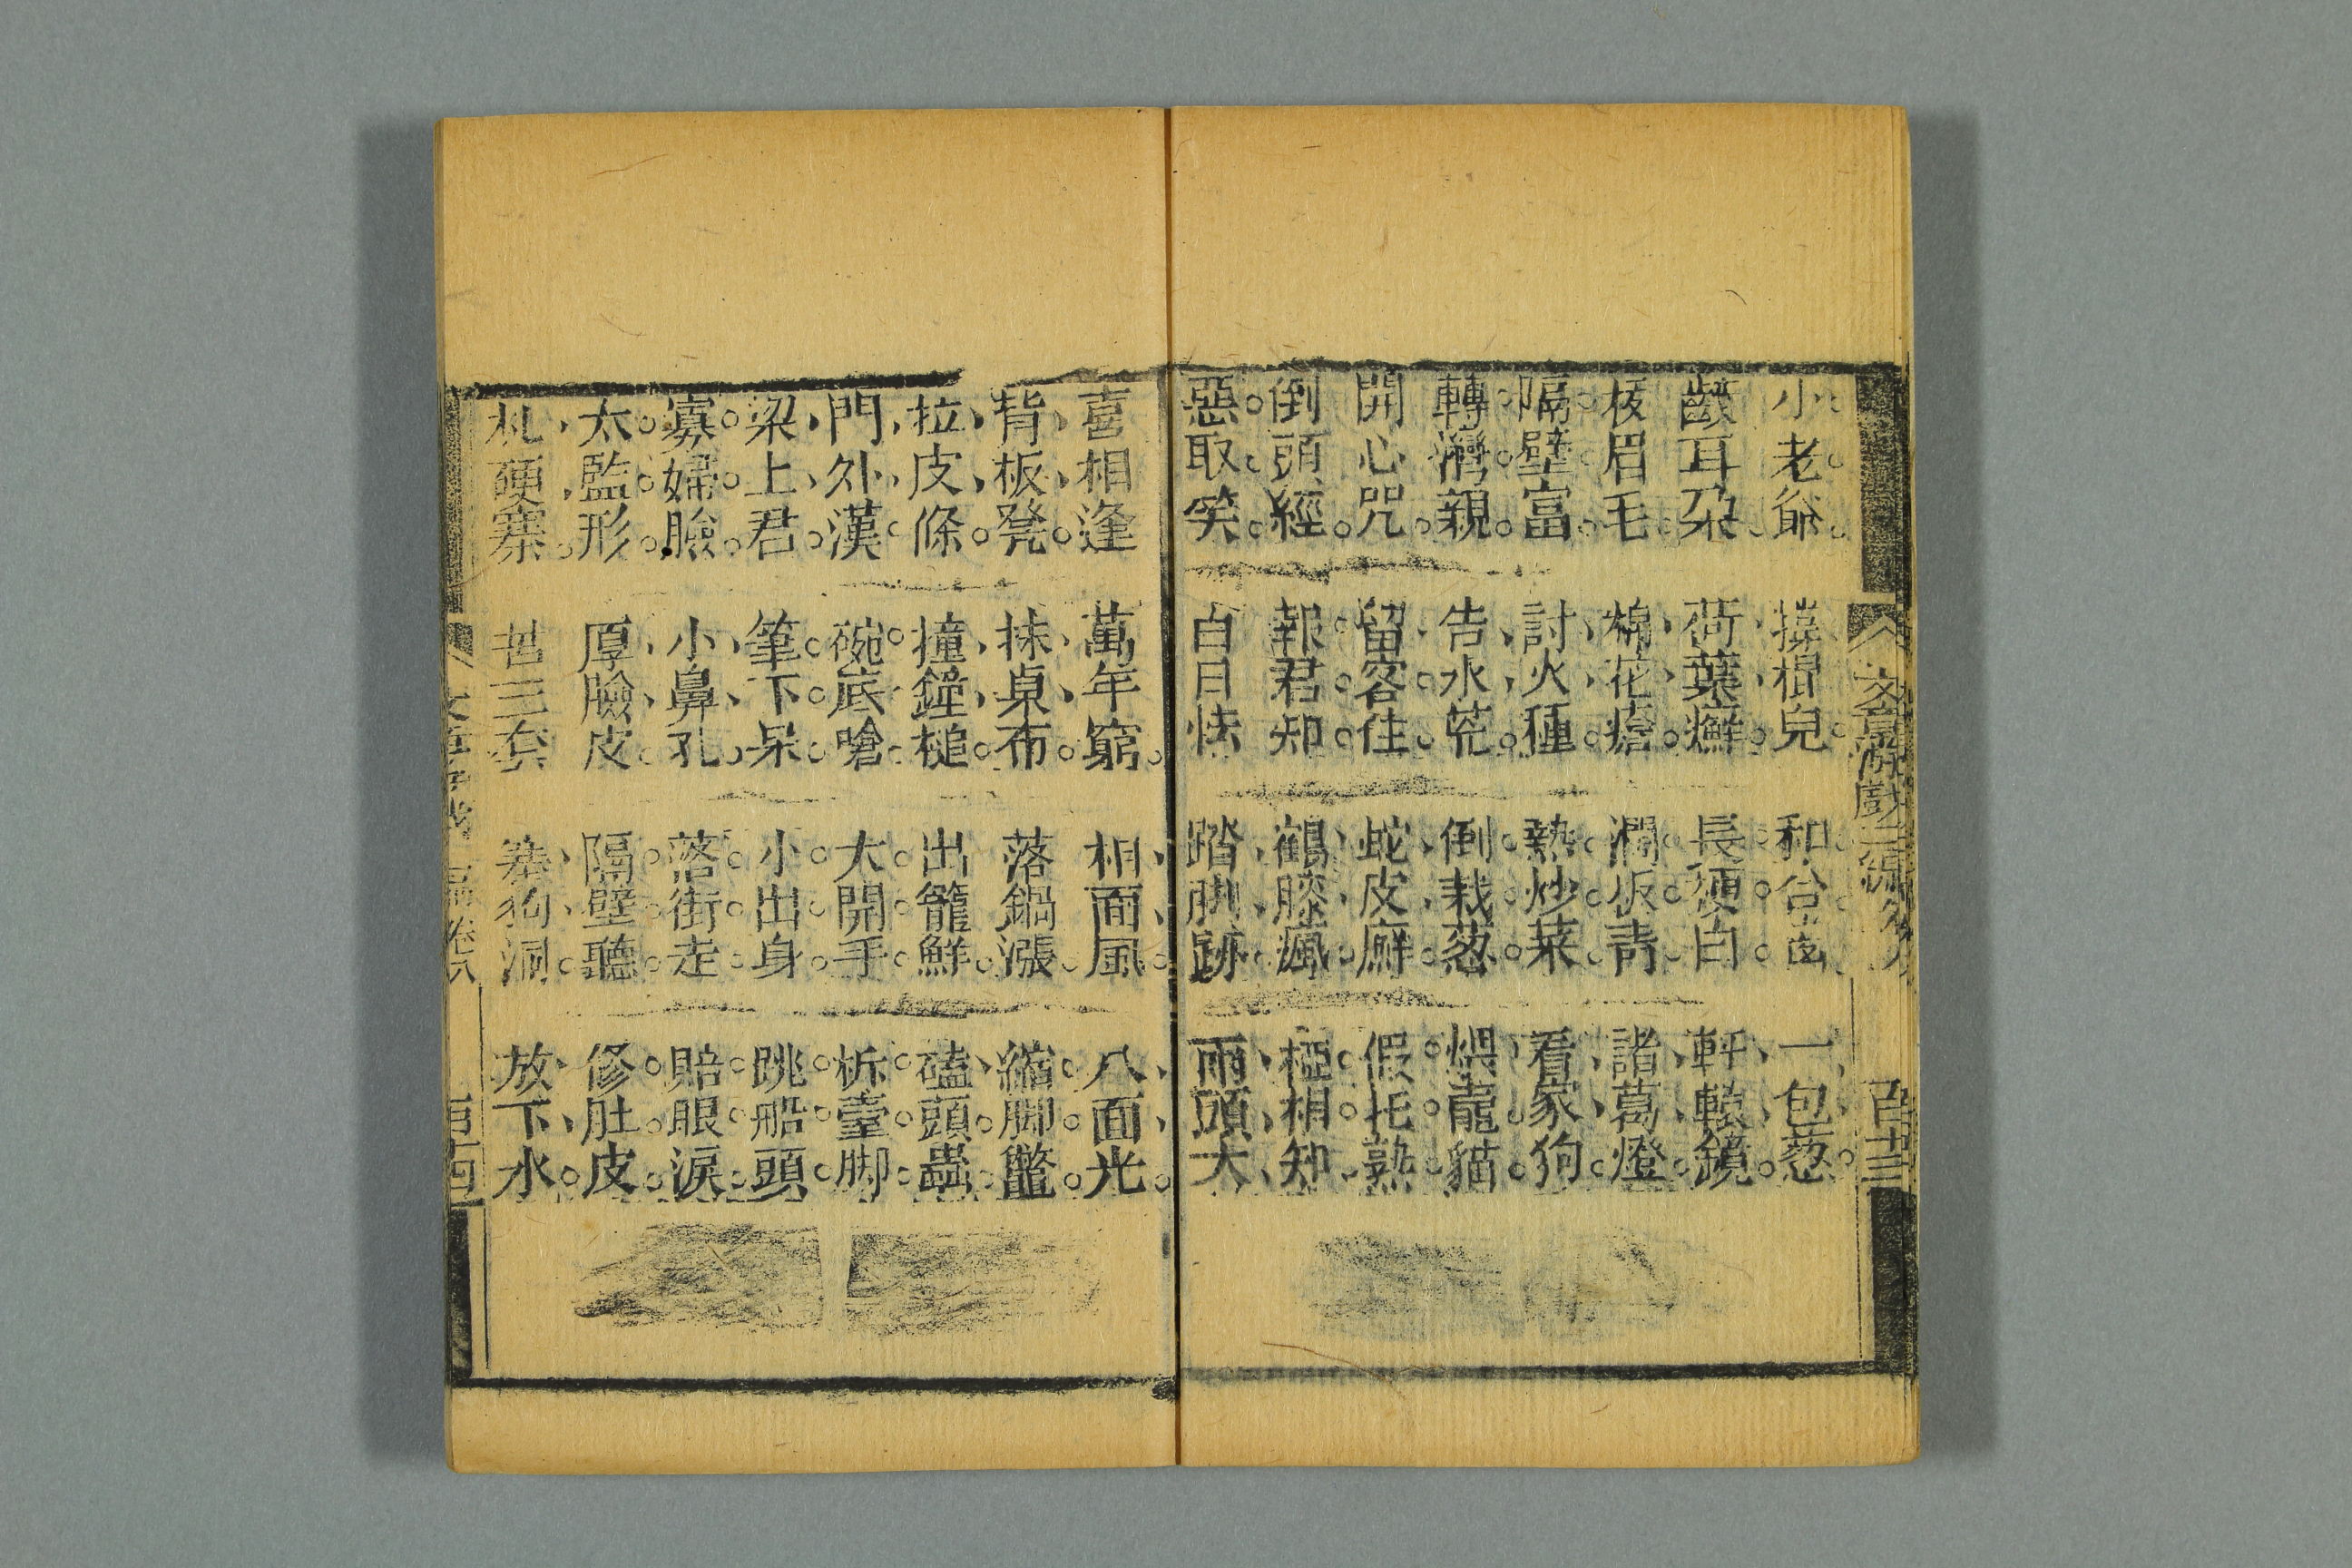 小老爺 撐棍兒 和合崮 一包葱
齾耳朶 荷葉癬 長便白 軒轅鏡
板眉毛 棉花瘡 澗板青 諸葛燈
隔壁富 討火種 熱炒菜 看家狗
轉灣親 告水荒 倒栽葱 煨竈貓
開心咒 留客住 蛇皮廯 假托熟
倒頭經 報君知 鶴膝瘋 極相知
惡取笑 白日怯 踏脚跡 兩頭大
喜相逢 萬年窮 相面風 八面光
背板凳 抹桌布 落鍋漲 縮脚鼈
拉皮條 撞鐘槌 出籠鮮 磕頭蟲
門外漢 碗底嗆 大開手 拆臺脚
梁上君 筆下呆 小出身 跳船頭
寡婦臉 小鼻孔 落街走 賠眼淚
太監形 厚臉皮 隔壁聽 修肚皮
札硬寨 三套 狗洞 放下水